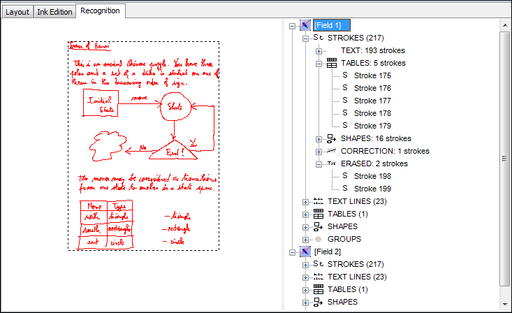 Layout
Ink Edition
Recognition
Tower of Hanoi
This is an ancient Chinese puzzle. You have three
poles and a set of n disks is stacked on one of
them in the decreasing order of size.
Initial
State
move
State
No
Yes
End?
The moves may be considered as transitions
from one state to another in a state space.
Move Type
north triangle - triangle
south rectangle - rectangle
east circle - circle
[Field 1]
STROKES (217)
TEXT: 193 strokes
TABLES: 5 strokes
S Stroke 175
S Stroke 176
S Stroke 177
S Stroke 178
S Stroke 179
SHAPES: 16 strokes
CORRECTION: 1 strokes
ERASED: 2 strokes
S Stroke 198
S Stroke 199
TEXT LINES (23)
TABLES (1)
SHAPES
GROUPS
[Field 2]
STROKES (217)
TEXT LINES (23)
TABLES (1)
SHAPES